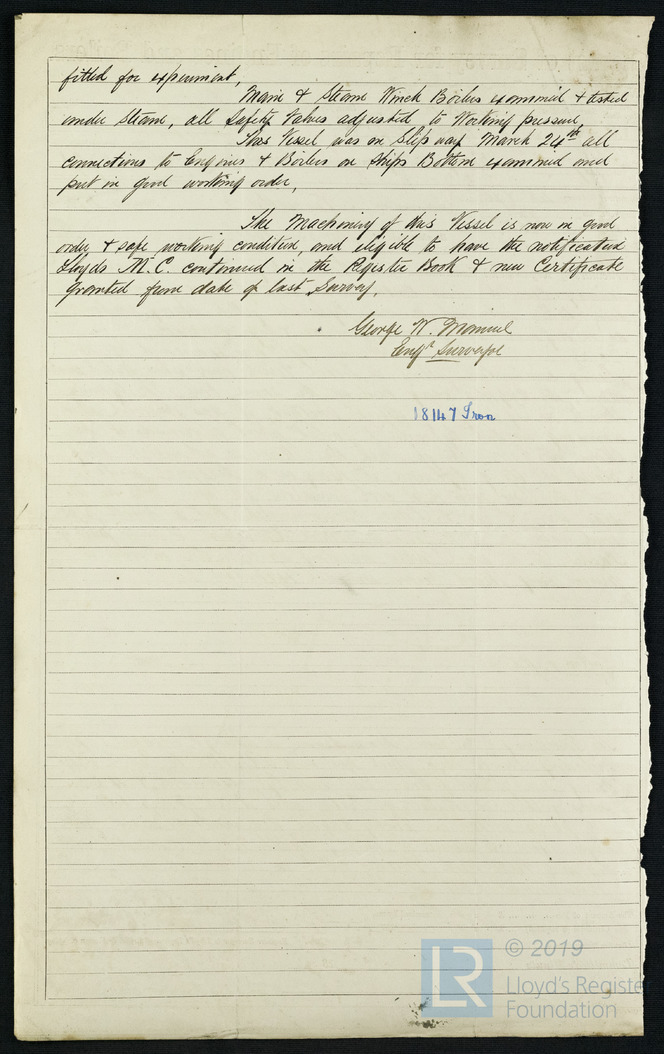 fitted for experiment,
Main & Steam Winch Boilers examined & tested
under Steam, all Safety Valves adjusted to Working pressure,
This Vessel was on Slip way March 24th all
connections to Engines & Boilers on Ships Bottom examined and
put in good working order,
The Machinery of this Vessel is now in good
order & safe working condition, and eligible to have the notification
Lloyds M.C. continued in the Register Book & new Certificate
granted from date of last Survey.
George W. Manuel
Engr Surveyor
18147 Iron
LR
© 2019
Lloyd's Register
Foundation